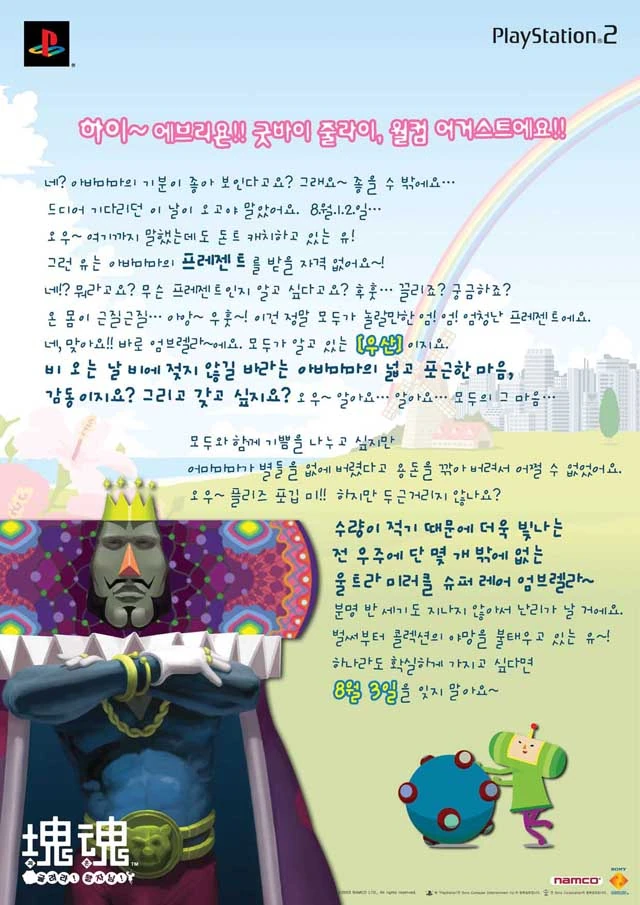 PlayStation®2
하이~ 에브리욘!! 굿바이 줄라이, 웰컴 어거스트에요!!
네? 아바마마의 기분이 좋아 보인다고요? 그래요~ 좋을 수 밖에요…
드디어 기다리던 이 날이 오고야 말았어요. 8월.1.2.일…
오우~ 여기까지 말했는데도 돈트 캐치하고 있는 유!
그런 유는 아바마마의 프레젠트를 받을 자격 없어요~!
네!? 뭐라고요? 무슨 프레젠트인지 알고 싶다고요? 후훗… 끌리죠? 궁금하죠?
온 몸이 근질근질… 아앙~ 우훗~! 이건 정말 모두가 놀랄만한 엄! 엄! 엄청난 프레젠트에요.
네, 맞아요!! 바로 엄브렐라~에요. 모두가 알고 있는 [우산]이지요.
비 오는 날 비에 젖지 않길 바라는 아바마마의 넓고 포근한 마음,
감동이지요? 그리고 갖고 싶지요? 오우~ 알아요… 알아요… 모두의 그 마음…
모두와 함께 기쁨을 나누고 싶지만
어마마마가 별들을 없에 버렸다고 용돈을 깎아 버려서 어쩔 수 없었어요.
오우~ 플리즈 포깁 미!! 하지만 두근거리지 않나요?
수량이 적기 때문에 더욱 빛나는
전 우주에 단 몇 개 밖에 없는
울트라 미러클 슈퍼 레어 엄브렐라~
분명 반 세기도 지나지 않아서 난리가 날 거에요.
벌써부터 콜렉션의 야망을 불태우고 있는 유~!
하나라도 확실하게 가지고 싶다면
8월 3일을 잊지 말아요~
塊魂™
굴려라! 왕자님!
namco®
SONY
NAMCO LTD., All rights reserved.